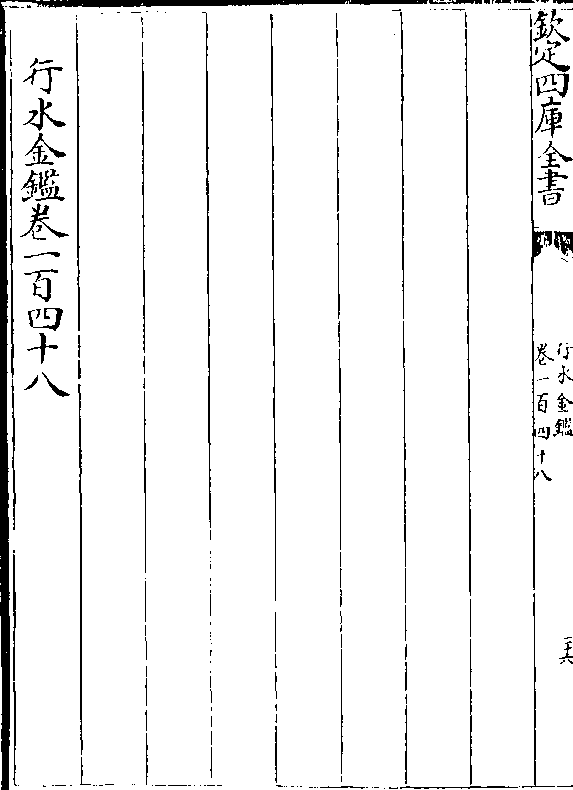 欽定四庫全書
行水金鑑
卷一百四十八
二十六
行水金鑑卷一百四十八